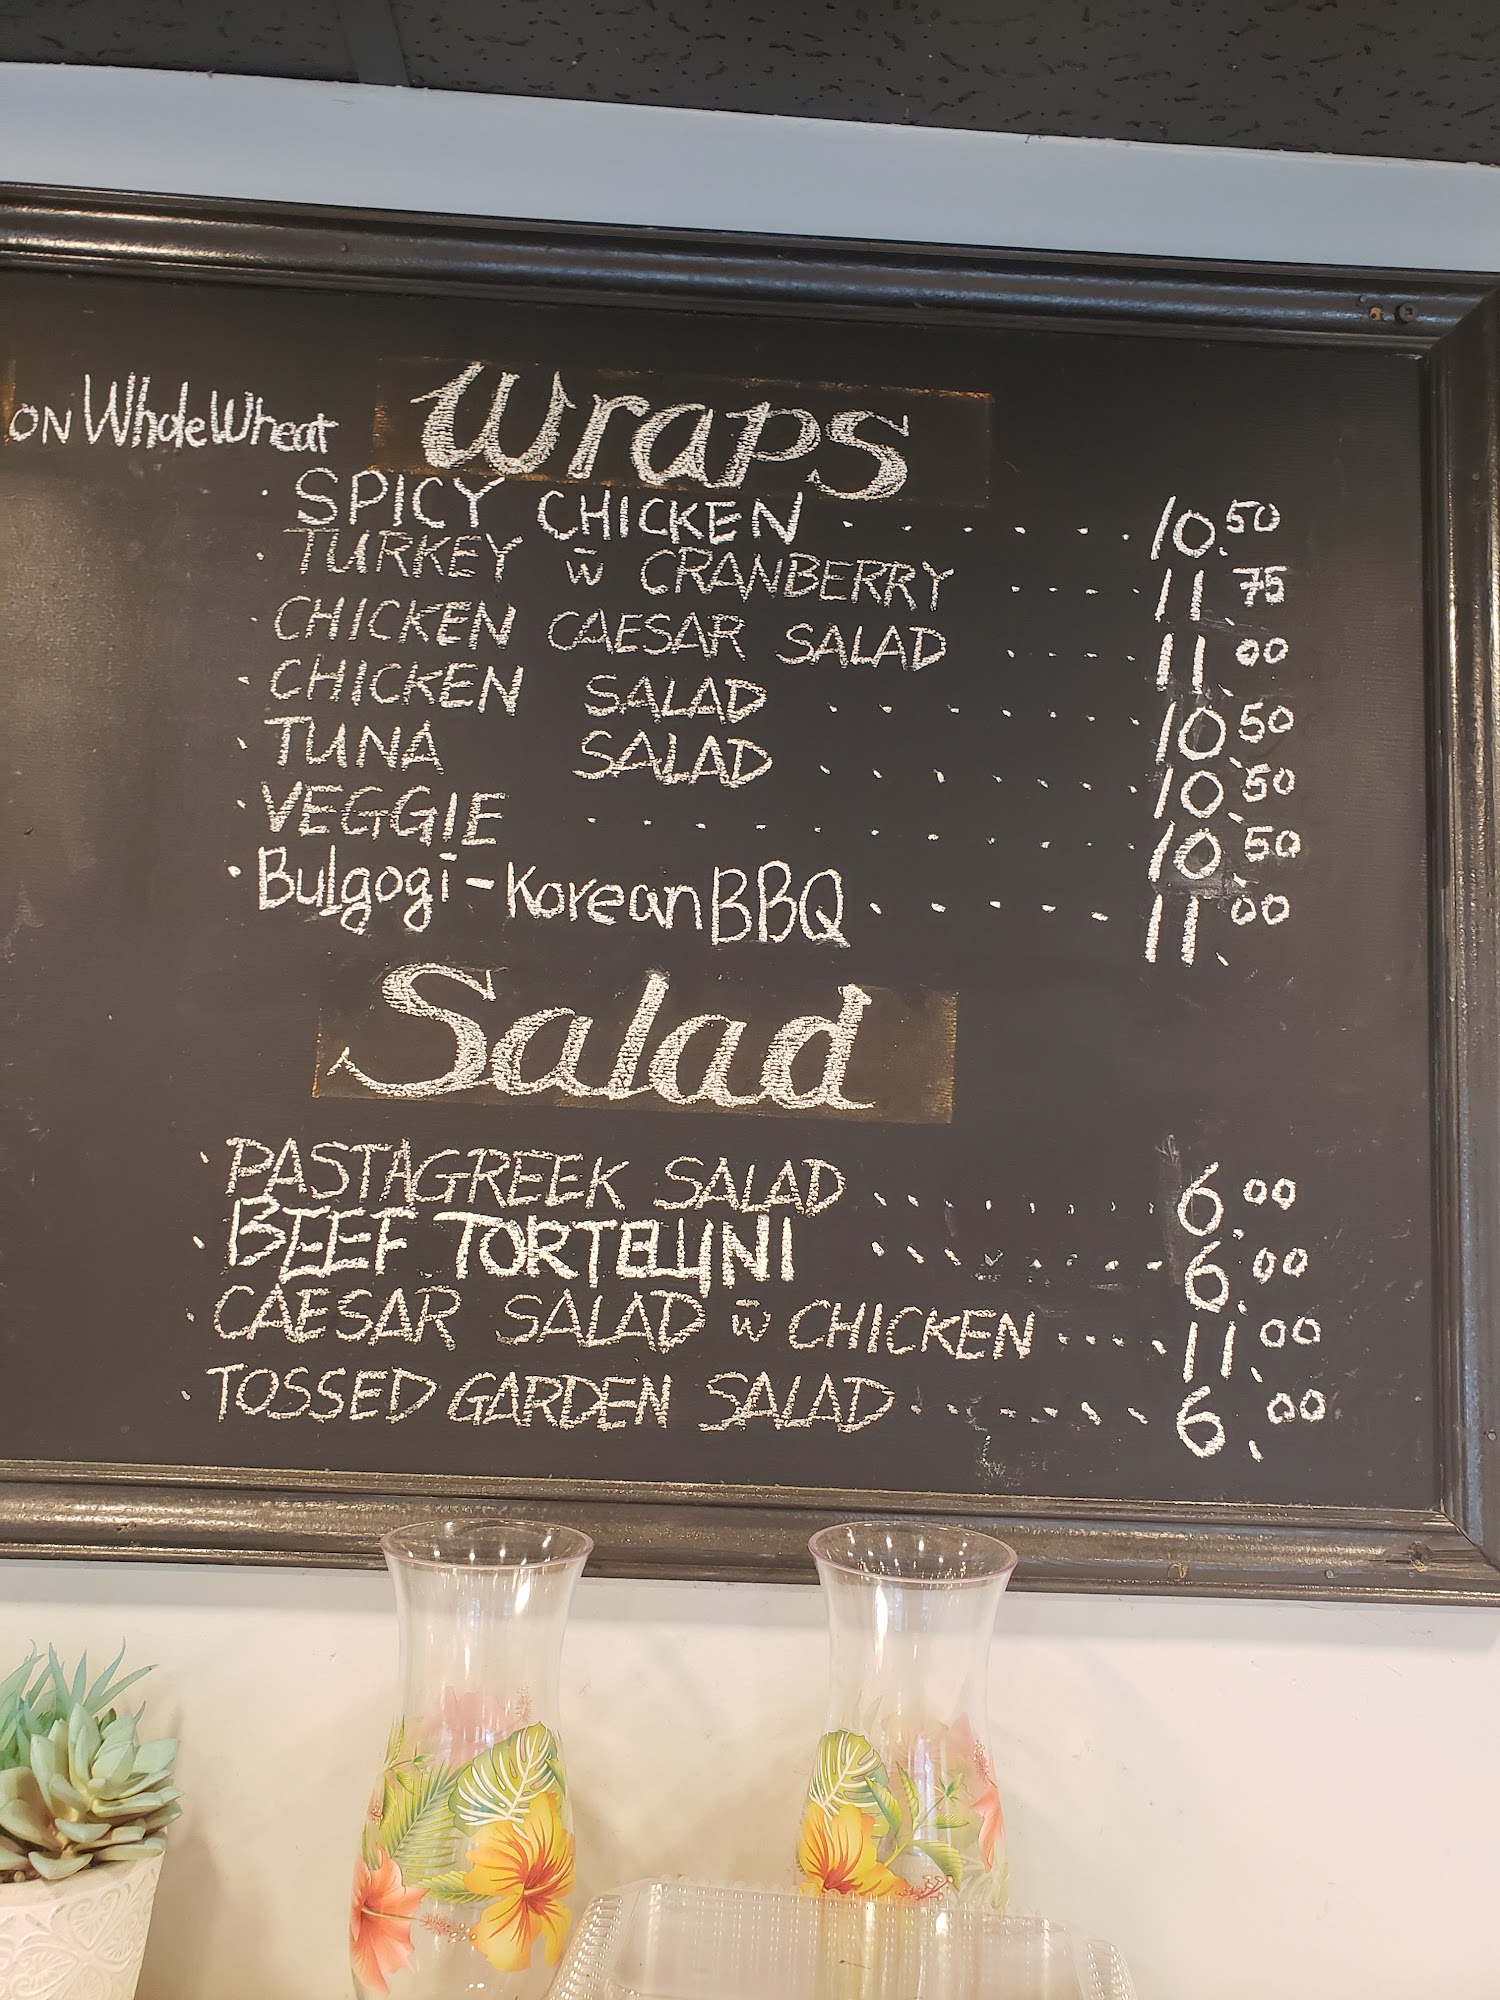 ON Whole Wheat Wraps
· SPICY CHICKEN . . . . . . 10.50
· TURKEY w̄ CRANBERRY . . . . 11.75
· CHICKEN CAESAR SALAD . . . . 11.00
· CHICKEN SALAD . . . . . . 10.50
· TUNA SALAD . . . . . . 10.50
· VEGGIE . . . . . . . . . . 10.50
· Bulgogi - Korean BBQ . . . . . 11.00
Salad
· PASTA GREEK SALAD . . . . . . . 6.00
· BEEF TORTELLINI . . . . . . . . 6.00
· CAESAR SALAD w̄ CHICKEN . . . . . 11.00
· TOSSED GARDEN SALAD . . . . . . . . 6.00